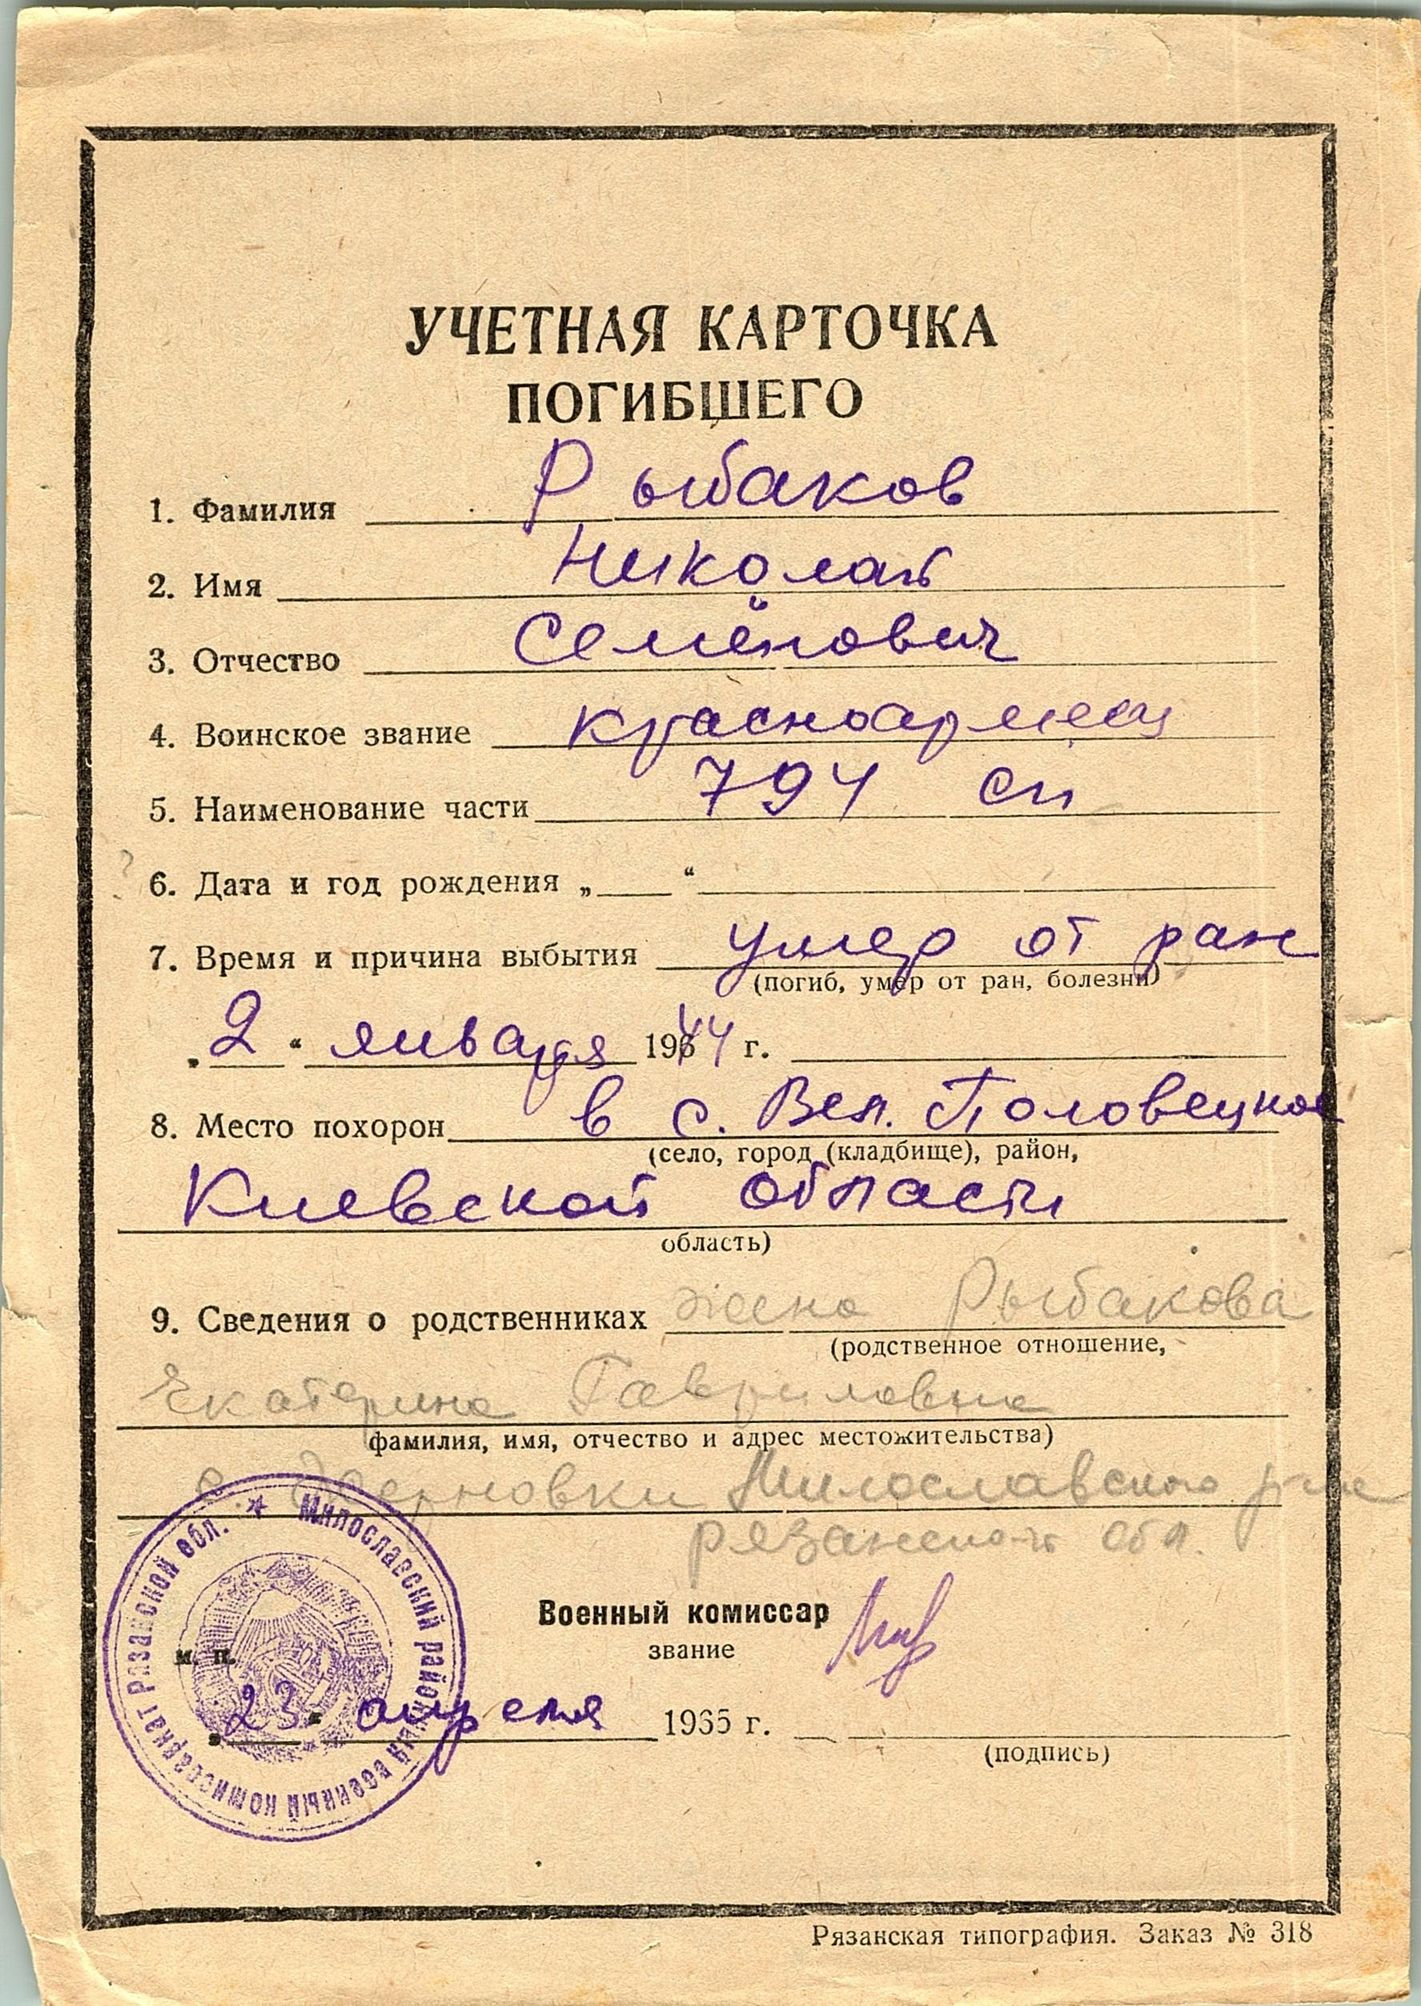 УЧЕТНАЯ КАРТОЧКА
ПОГИБШЕГО
1. Фамилия Рыбаков
2. Имя Николай
3. Отчество Семёнович
4. Воинское звание красноармеец
5. Наименование части 794 сп
? 6. Дата и год рождения „ “
7. Время и причина выбытия умер от ран
(погиб, умер от ран, болезни)
„2“ января 1944 г.
8. Место похорон в с. Вел. Половецкое
(село, город (кладбище), район,
Киевской области
область)
9. Сведения о родственниках жена Рыбакова
(родственное отношение,
Екатерина Гавриловна
фамилия, имя, отчество и адрес местожительства)
с. Милославского р-на
Рязанской обл.
Милославский районный военный комиссариат Рязанской обл.
Военный комиссар
звание
м. п.
„23“ апреля 1965 г.
(подпись)
Рязанская типография. Заказ № 318